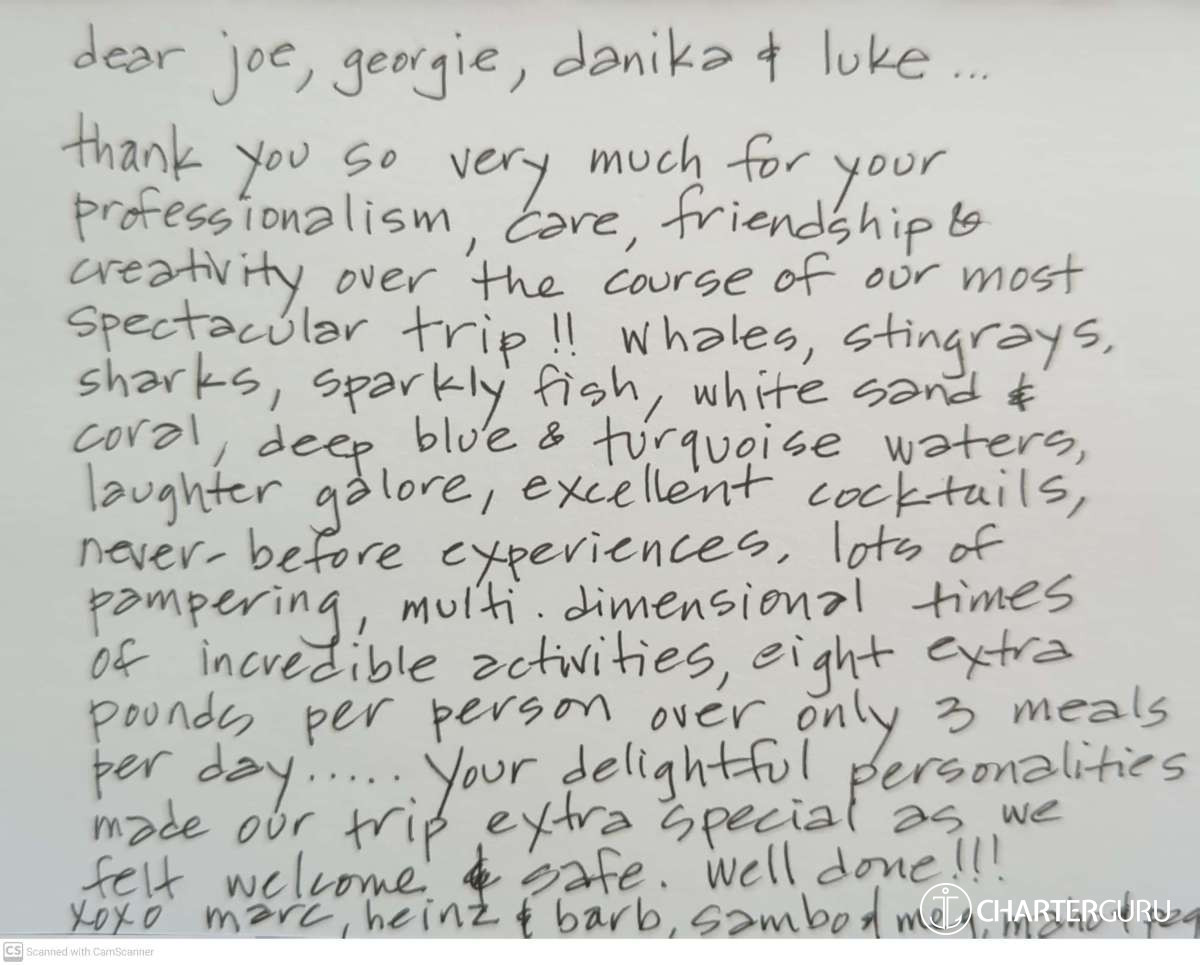 dear joe, georgie, danika & luke ...
thank you so very much for your
professionalism, care, friendship &
creativity over the course of our most
spectacular trip!! whales, stingrays,
sharks, sparkly fish, white sand &
coral, deep blue & turquoise waters,
laughter galore, excellent cocktails,
never-before experiences, lots of
pampering, multi. dimensional times
of incredible activities, eight extra
pounds per person over only 3 meals
per day..... your delightful personalities
made our trip extra special as we
felt welcome & safe. well done!!!
xoxo marc, heinz & barb, sambo &
CHARTERGURU
CS Scanned with CamScanner